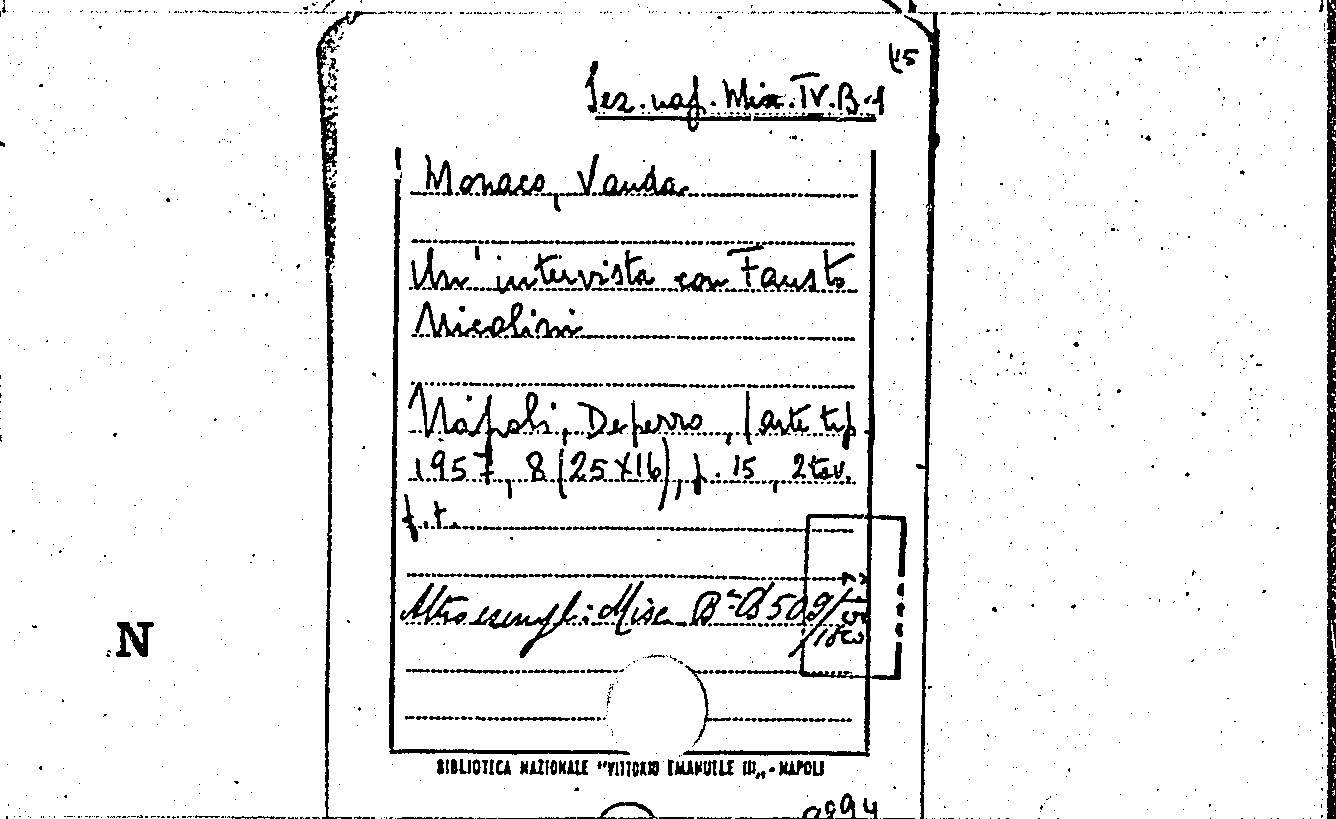 45
Sez. naf. Misc. IV. B. 1
Monaco, Vanda
Un' intervista con Fausto
Nicolini
Napoli, Deperro, l'arte tip.
1957, 8 (25X16), p. 15, 2 tav.
f. t.
Altro esempl.: Misc. B= B 509/
/18
N
BIBLIOTECA NAZIONALE "VITTORIO EMANUELE III„ - NAPOLI